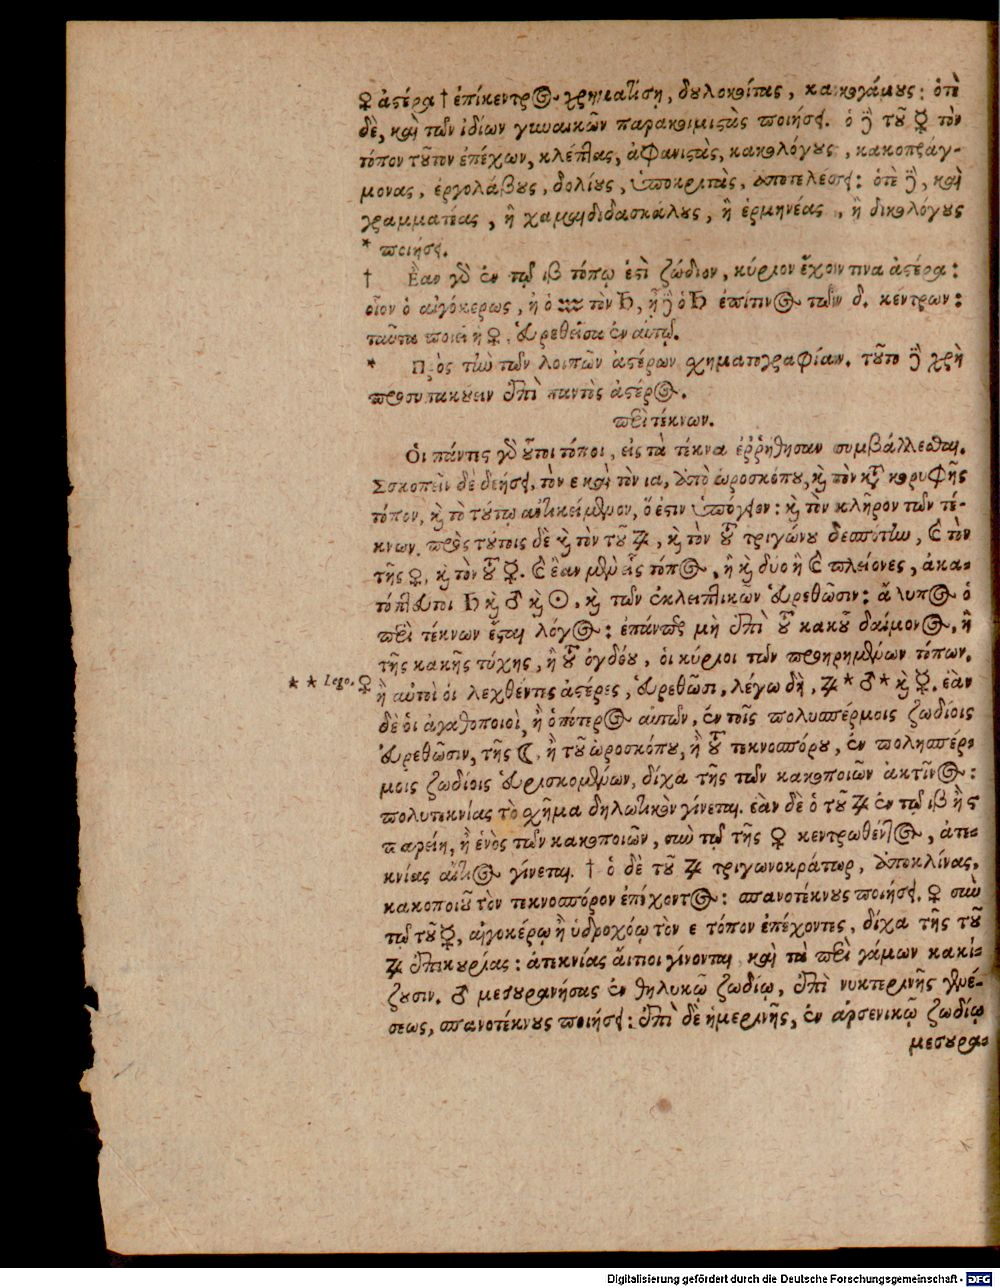 ♀ ἀστέρα † ἐπίκεντρος χρηματίση, δουλοκοίτας, κακογάμους: ὁτὲ
δὲ, καὶ τῶν ἰδίων γυναικῶν παρακοιμιστὰς ποιήσει. ὁ δὲ τοῦ ☿ τὸν
τόπον τοῦτον ἐπέχων, κλέπτας, ἀφανιστὰς, κακολόγους, κακοπράγ-
μονας, ἐργολάβους, δολίους, ὑποκριτὰς, ἀποτελέσει: ὁτὲ δὲ, καὶ
γραμματέας, ἢ χαμαιδιδασκάλους, ἢ ἑρμηνέας, ἢ δικολόγους
* ποιήσει.
† Ἐὰν γὰρ ἐν τῷ ιβ τόπῳ ἐστὶ ζώδιον, κύριον ἔχοιν τινα ἀστέρα:
οἷον ὁ αἰγόκερως, ἢ ὁ ♒ τὸν ♄, ἦ δὲ ὁ ♄ ἐπίτινος τῶν δ. κέντρων:
ταῦτα ποιεῖ ἡ ♀, εὑρεθεῖσα ἐν αὐτῷ.
* Πρὸς τὴν τῶν λοιπῶν ἀστέρων σχηματογραφίαν. τοῦτο δὲ χρὴ
προσυπακούειν ἐπὶ παντὸς ἀστέρος.
περὶ τέκνων.
Οἱ πάντες γὰρ οὗτοι τόποι, εἰς τὰ τέκνα ἐῤῥήθησαν συμβάλλεσθαι.
Σσκοπεῖν δὲ δεήσει, τὸν ε καὶ τὸν ια, ἀπὸ ὡροσκόπου, καὶ τὸν κατὰ κορυφῆς
τόπον, καὶ τὸ τούτῳ ἀντικείμενον, ὅ ἐστιν ὑπόγειον: καὶ τὸν κλῆρον τῶν τέ-
κνων. πρὸς τούτοις δὲ καὶ τὸν τοῦ ♃, καὶ τὸν τοῦ τριγώνου δεσπότην, καὶ τὸν
τῆς ♀, καὶ τὸν τοῦ ☿. καὶ ἐὰν μὲν εἷς τόπος, ἢ καὶ δύο ἢ καὶ πλείονες, ἀκα-
τόπτευτοι ♄ καὶ ♂ καὶ ☉, καὶ τῶν ἐκλειπτικῶν εὑρεθῶσιν: ἄλυπος ὁ
περὶ τέκνων ἔσται λόγος: ἐπάντος μὴ ἐπὶ τοῦ κακοῦ δαίμονος, ἢ
τῆς κακῆς τύχης, ἢ τοῦ ὀγδόου, οἱ κύριοι τῶν προηρημένων τόπων.
* * Lego. ♀ ἢ αὐτοὶ οἱ λεχθέντες ἀστέρες, εὑρεθῶσι, λέγω δὴ, ♃ * ♂ * καὶ ☿. ἐὰν
δὲ οἱ ἀγαθοποιοὶ, ἢ ὁπότερος αὐτῶν, ἐν τοῖς πολυσπέρμοις ζωδίοις
εὑρεθῶσιν, τῆς ☾, ἢ τοῦ ὡροσκόπου, ἢ τοῦ τεκνοσπόρου, ἐν πολησπέρ-
μοις ζωδίοις εὑρισκομένων, δίχα τῆς τῶν κακοποιῶν ἀκτῖνος:
πολυτεκνίας τὸ σχῆμα δηλωτικὸν γίνεται. ἐὰν δὲ ὁ τοῦ ♃ ἐν τῷ ιβ ἢ ϛ
παρείη, ἢ ἑνὸς τῶν κακοποιῶν, σὺν τῷ τῆς ♀ κεντρωθέντος, ἀτε-
κνίας αἴτιος γίνεται. † ὁ δὲ τοῦ ♃ τριγωνοκράτωρ, ἀποκλίνας,
κακοποιοῦ τὸν τεκνοσπόρον ἐπέχοντος: σπανοτέκνους ποιήσει. ♀ σὺν
τῷ τοῦ ☿, αἰγοκέρῳ ἢ ὑδροχόῳ τὸν ε τόπον ἐπέχοντες, δίχα τῆς τοῦ
♃ ἐπικουρίας: ἀτεκνίας αἴτιοι γίνονται καὶ τὰ περὶ γάμων κακί-
ζουσιν. ♂ μεσουρανήσας ἐν θηλυκῷ ζωδίῳ, ἐπὶ νυκτερινῆς γενέ-
σεως, σπανοτέκνους ποιήσει: ἐπὶ δὲ ἡμερινῆς, ἐν ἀρσενικῷ ζωδίῳ
μεσουρα-
Digitalisierung gefördert durch die Deutsche Forschungsgemeinschaft - DFG